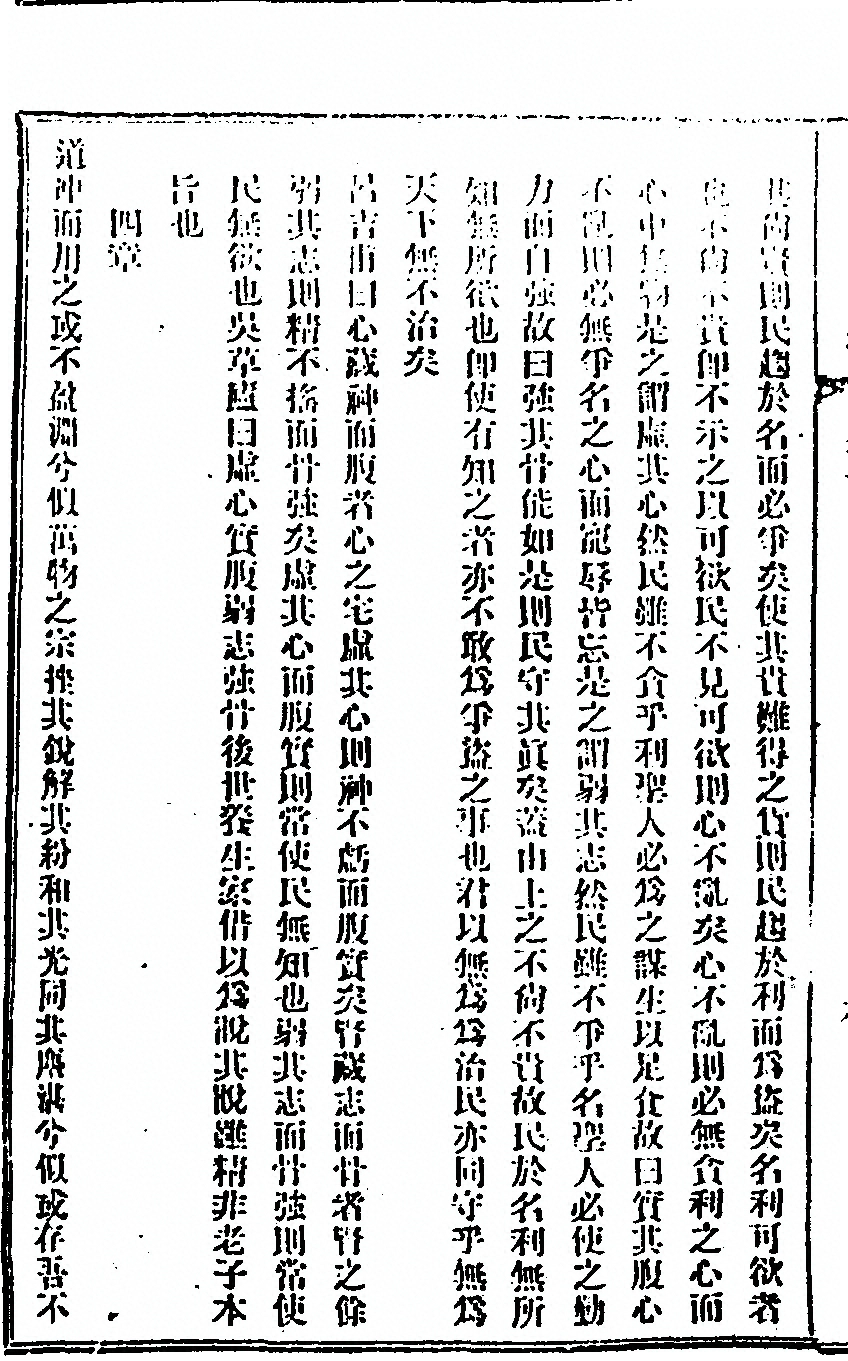 其尚賢則民趨於名而必爭矣使其貴難得之貨則民趨於利而為盜矣名利可欲者
也不尚不貴卽不示之以可欲民不見可欲則心不亂矣心不亂則必無貪利之心而
心中無物是之謂虛其心然民雖不貪乎利聖人必為之謀生以足食故曰實其腹心
不亂則必無爭名之心而寵辱皆忘是之謂弱其志然民雖不爭乎名聖人必使之勤
力而自強故曰強其骨能如是則民守其眞矣蓋由上之不尚不貴故民於名利無所
知無所欲也卽使有知之者亦不敢為爭盜之事也君以無為為治民亦同守乎無為
天下無不治矣
呂吉甫曰心藏神而腹者心之宅虛其心則神不虧而腹實矣腎藏志而骨者腎之餘
弱其志則精不搖而骨強矣虛其心而腹實則常使民無知也弱其志而骨強則常使
民無欲也吳草廬曰虛心實腹弱志強骨後世養生家借以為說其說雖精非老子本
旨也
四章
道沖而用之或不盈淵兮似萬物之宗挫其銳解其紛和其光同其塵湛兮似或存吾不